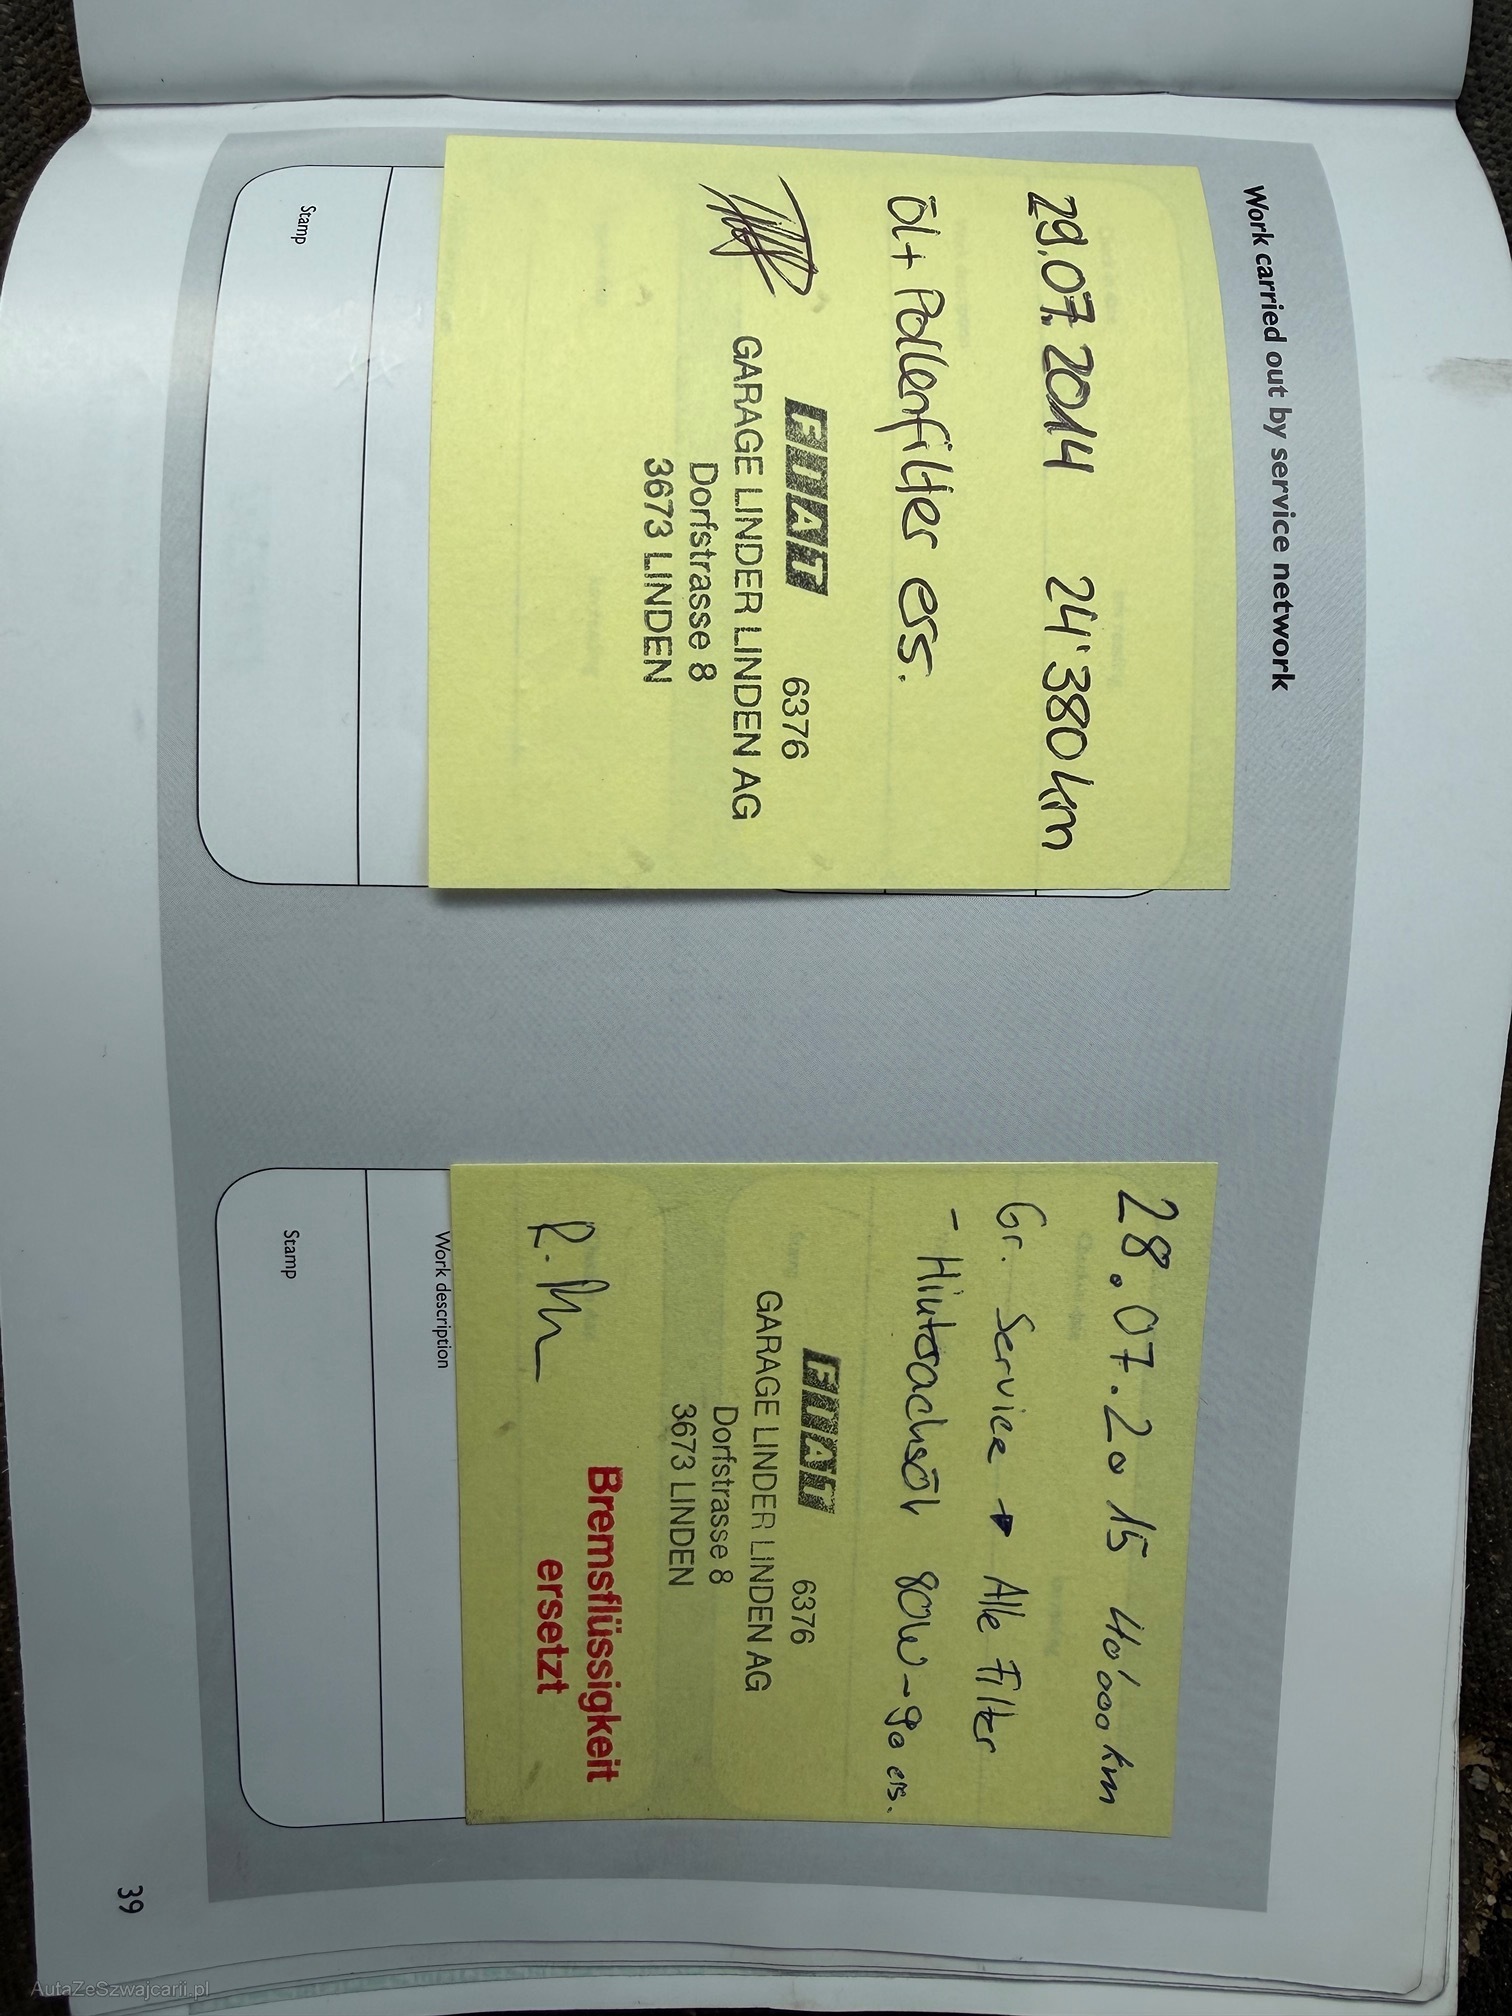 Work carried out by service network
29.07.2014 24'380 km
Öl + Pollenfilter ess.
FIAT 6376
GARAGE LINDER LINDEN AG
Dorfstrasse 8
3673 LINDEN
Stamp
28.07.2015 40'000 km
Gr. Service → Alle Filter
- Hinterachsöl 80W-90 ers.
FIAT 6376
GARAGE LINDER LINDEN AG
Dorfstrasse 8
3673 LINDEN
Bremsflüssigkeit
ersetzt
Work description
Stamp
39
AutaZeSzwajcarii.pl